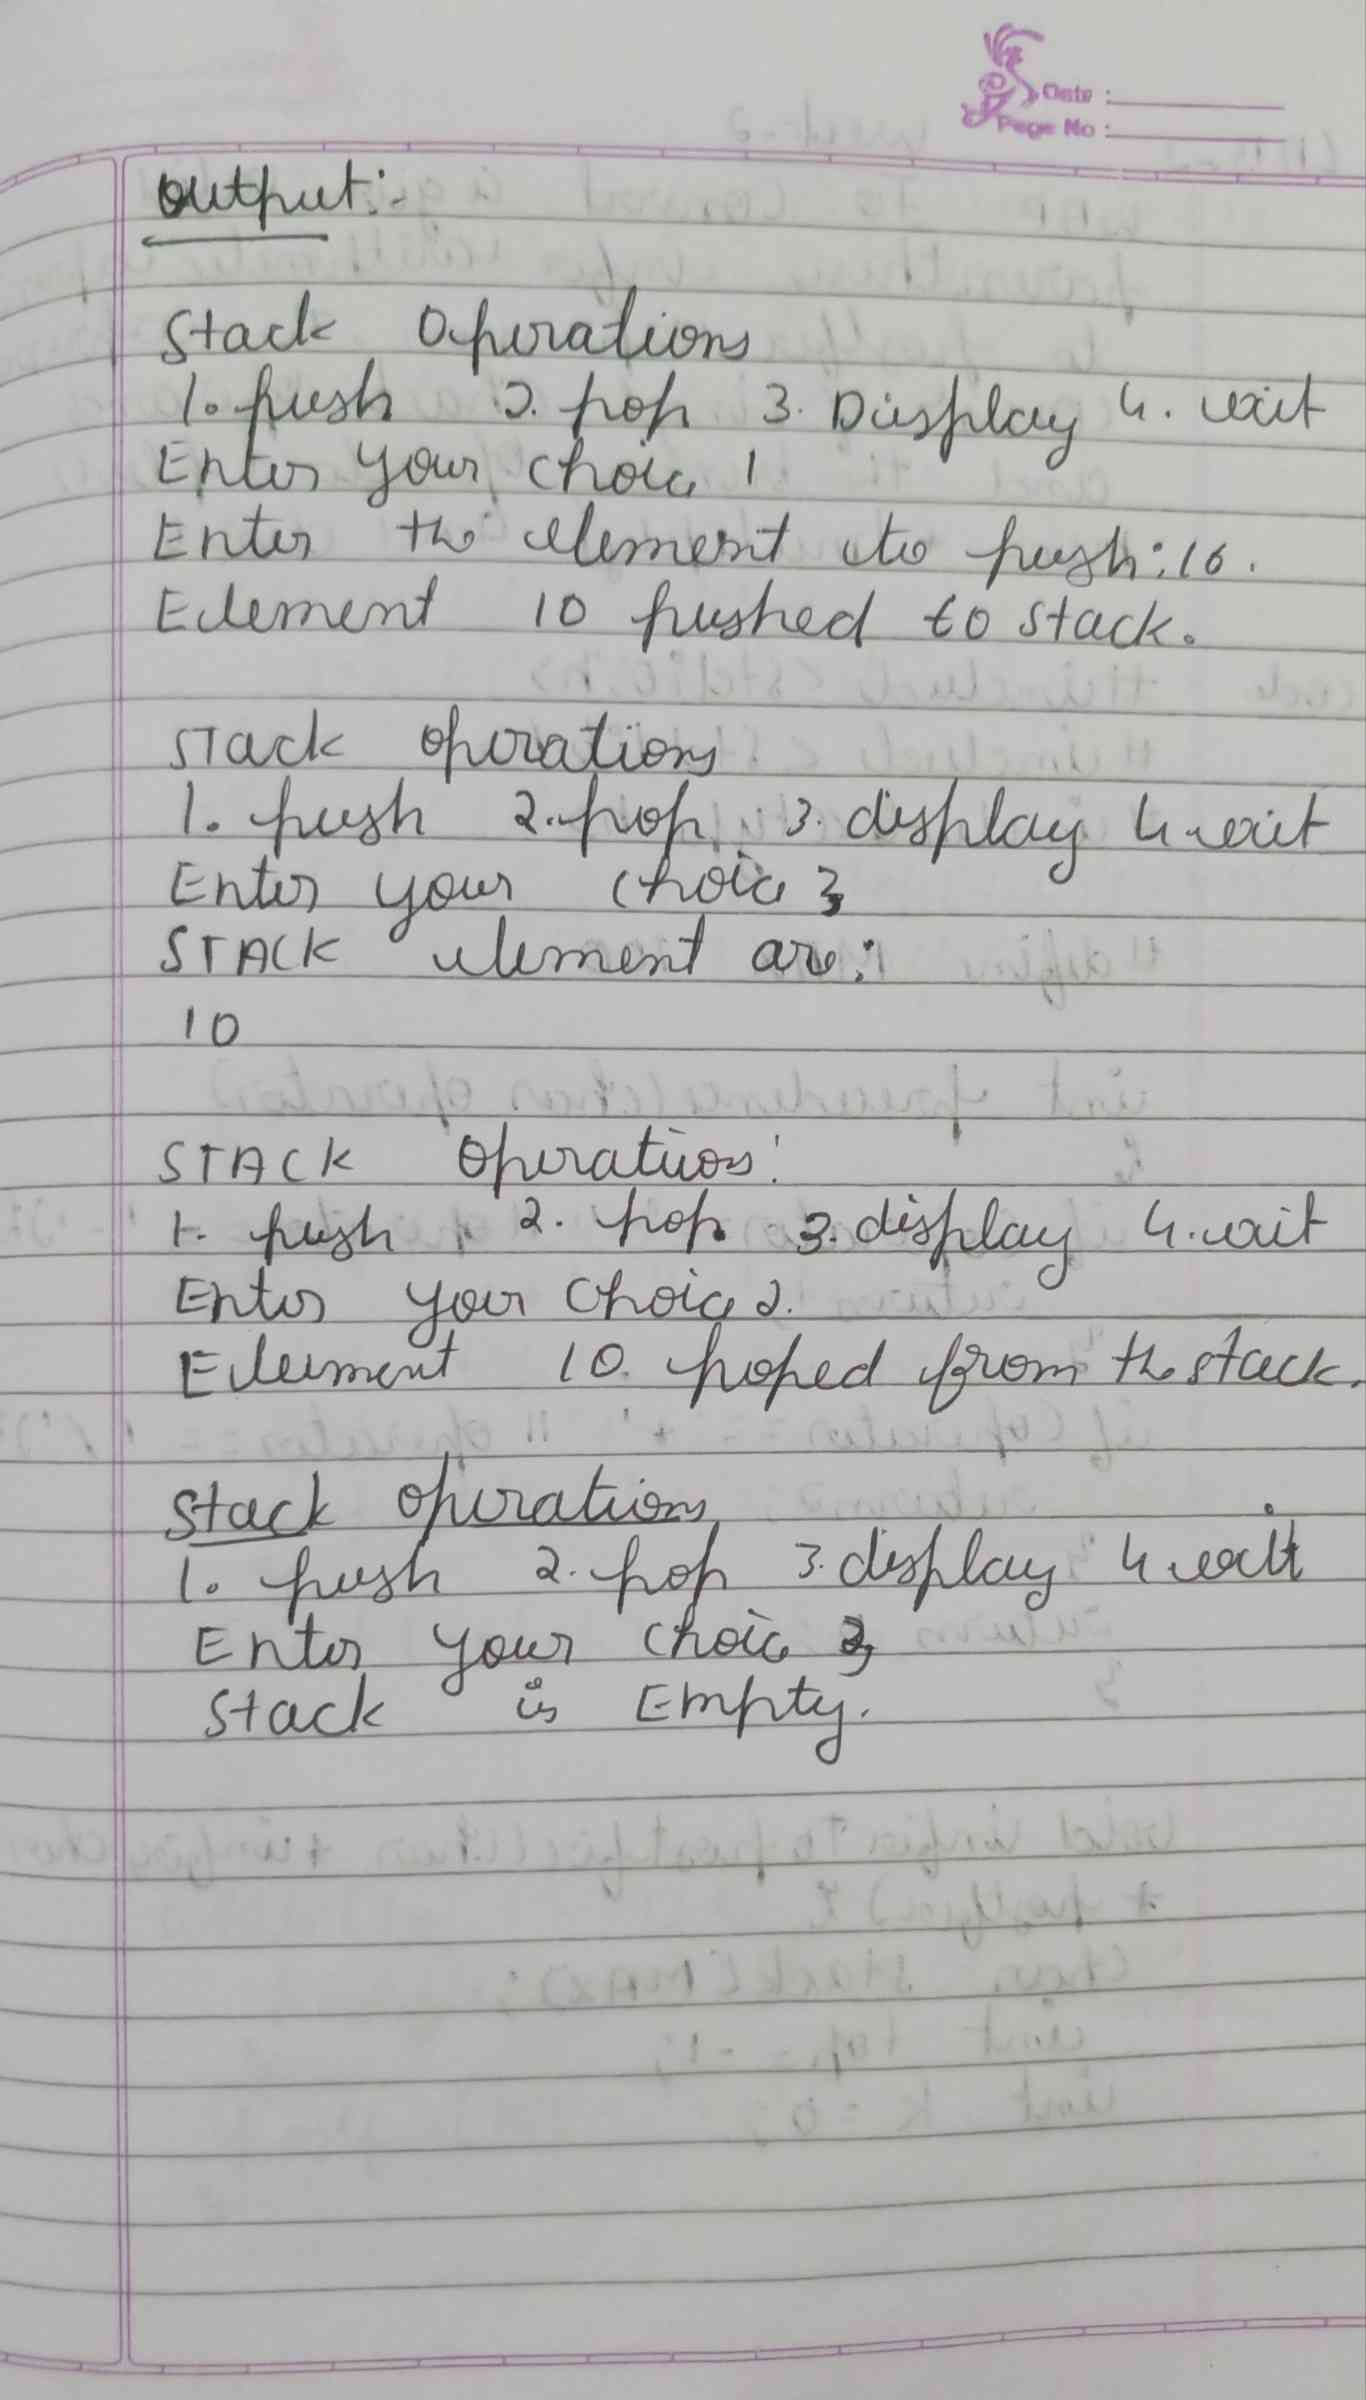 Date :
Page No :
Output:-
Stack Operations
1. push 2. pop 3. Display 4. exit
Enter your choice 1
Enter the element to push: 10.
Element 10 pushed to stack.
STack operations
1. push 2. pop 3. display 4. exit
Enter your choice 3
STACK element are:
10
STACK Operations:
1. push 2. pop 3. display 4. exit
Enter your choice 2.
Element 10 poped from the stack.
Stack operations
1. push 2. pop 3. display 4 exit
Enter your choice
Stack is Empty.